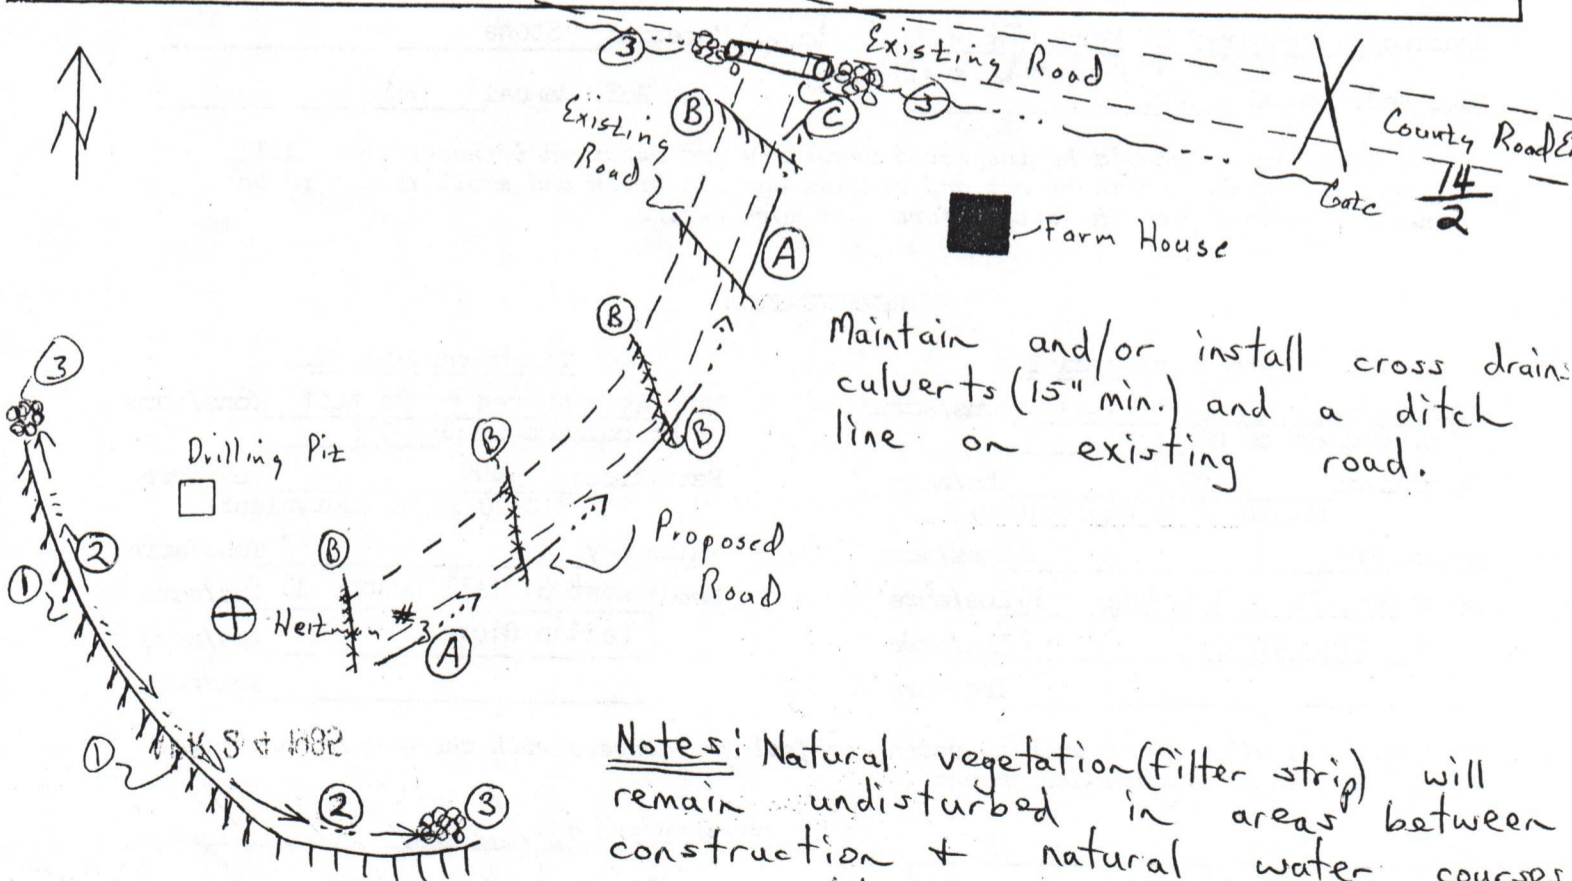 3
Existing Road
B
C
3
Existing
Road
County Road
14
2
Gate
A
Farm House
B
Maintain and/or install cross drains
culverts (15" min.) and a ditch
line on existing road.
3
B
B
Drilling Pit
Proposed
Road
2
B
1
#3
A
Notes: Natural vegetation (filter strip) will
remain undisturbed in areas between
construction + natural water courses
1
2
3
N